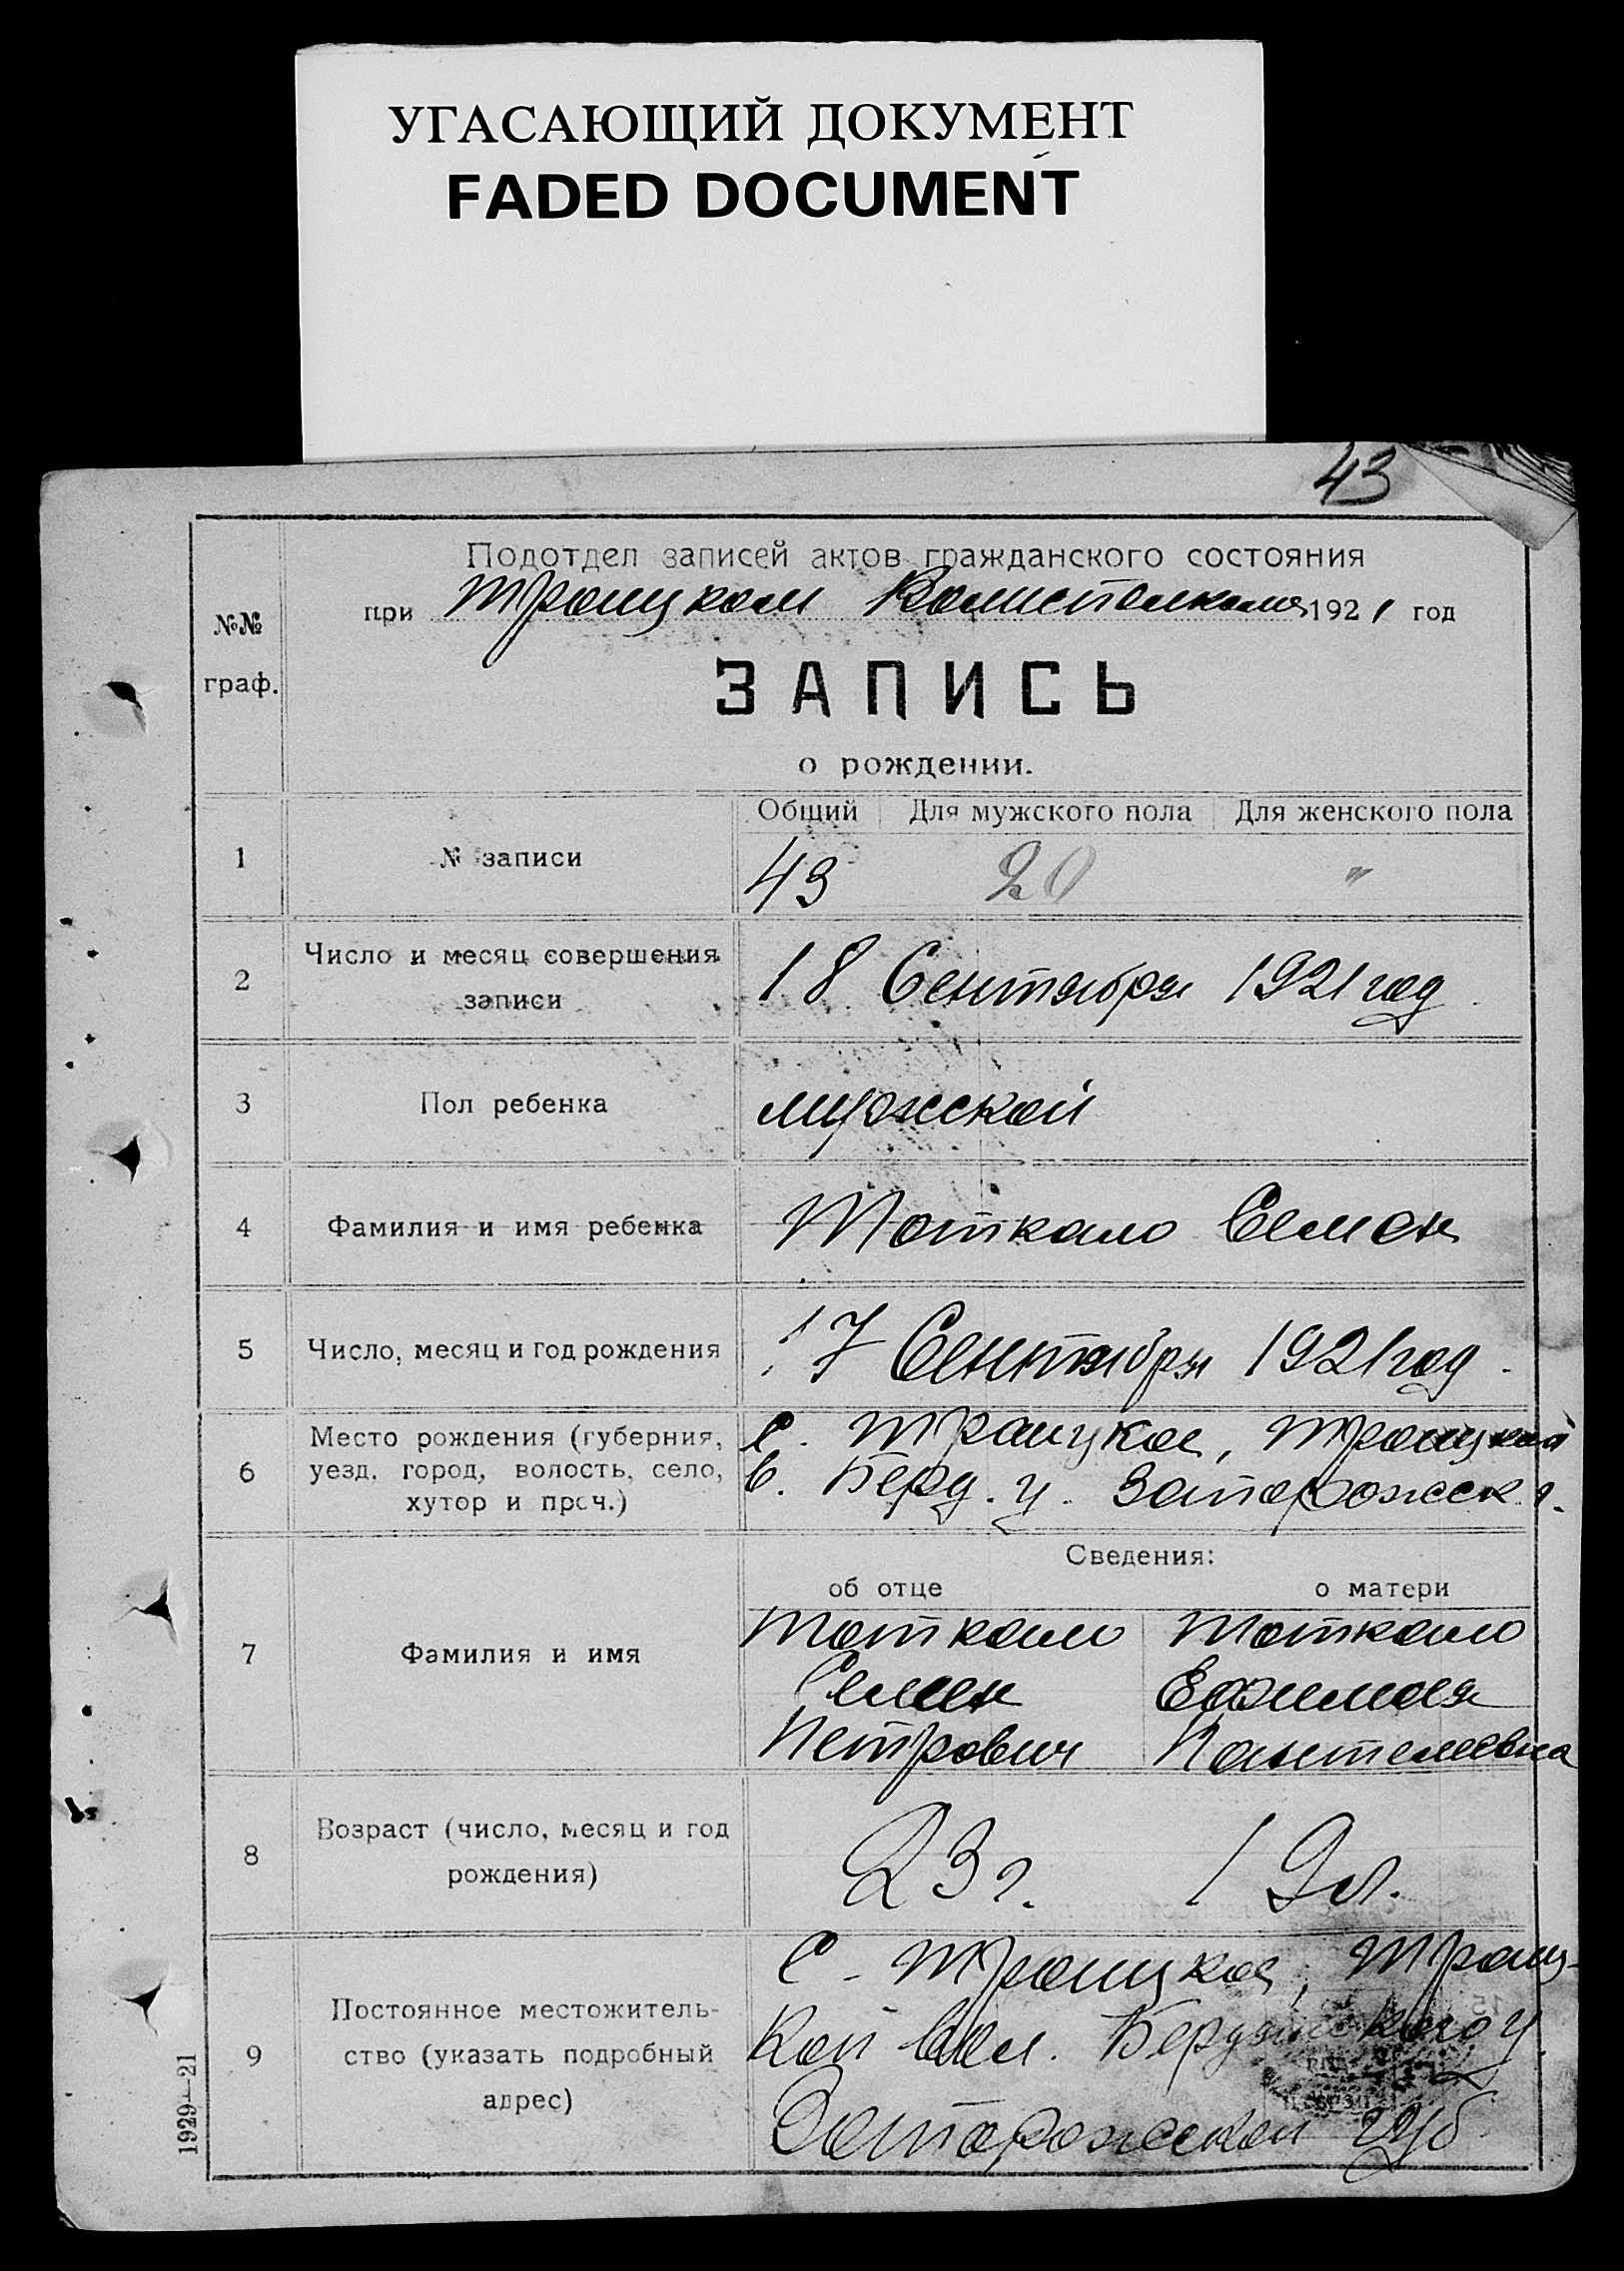 УГАСАЮЩИЙ ДОКУМЕНТ
FADED DOCUMENT
43
Подотдел записей актов гражданского состояния
при Троицком 1921 год
№№ граф.
ЗАПИСЬ
о рождении.
Общий Для мужского пола Для женского пола
1 № записи 43 20 "
2 Число и месяц совершения записи 18 Сентября 1921 год
3 Пол ребенка мужской
4 Фамилия и имя ребенка Тоткало Семен
5 Число, месяц и год рождения 17 Сентября 1921 год
6 Место рождения (губерния, уезд, город, волость, село, хутор и проч.)
с. Троицкое, Троицкой
в. Берд. у. Запорожск. г.
Сведения:
об отце о матери
7 Фамилия и имя
Тоткало Тоткало
Семен Ефимия
Петрович Пантелеевна
8 Возраст (число, месяц и год рождения) 23 г. 19 л.
9 Постоянное местожительство (указать подробный адрес)
с. Троицкое, Троиц-
кой вол. Бердянского у.
Запорожской губ.
1929—21